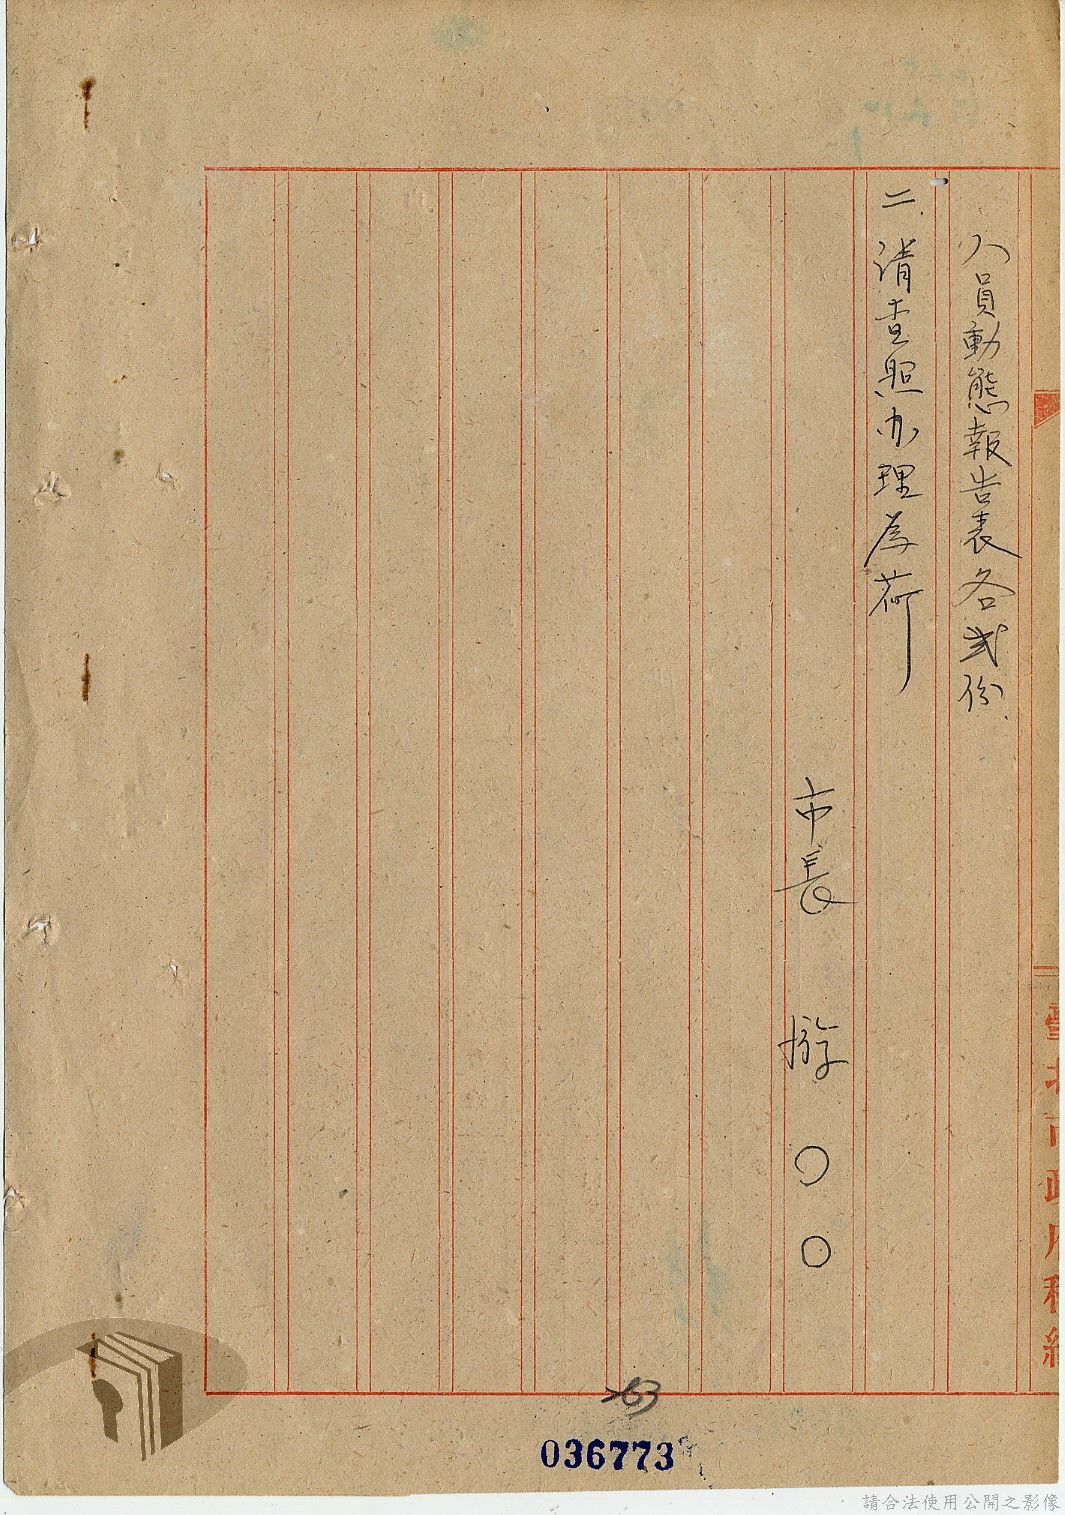 人員動態報告表各弍份.
二.請查照办理為荷
市長 游 〇〇
臺北市政府稿紙
263
036773
請合法使用公開之影像